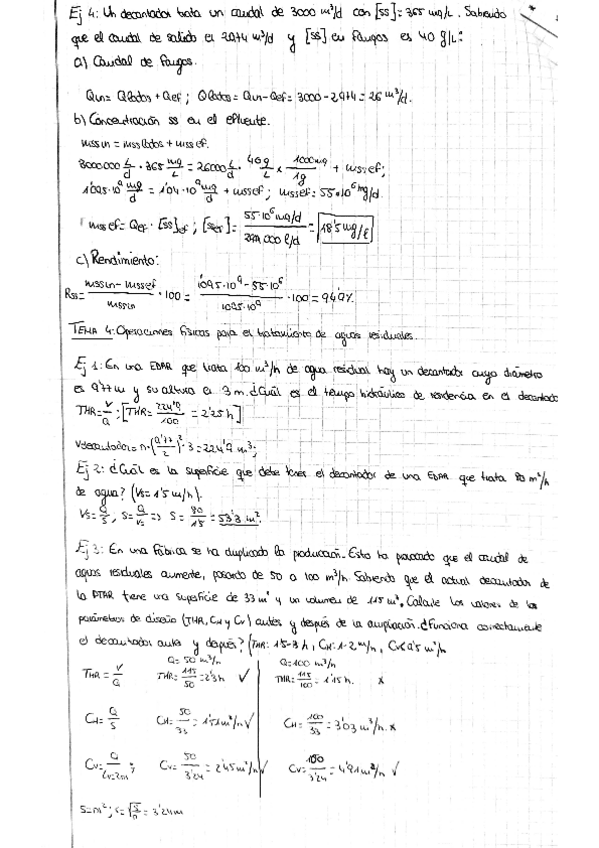 Ej 4: Un decantador trata un caudal de 3000 m³/d con [SS] = 365 mg/L. Sabiendo
que el caudal de salida es 2974 m³/d y [SS] en fangos es 40 g/L:
a) Caudal de fangos.
Qin = Qlodos + Qef ; Qlodos = Qin - Qef = 3000 - 2974 = 26 m³/d.
b) Concentración SS en el efluente.
mss in = mss lodos + mss ef.
3000000 L/d · 365 mg/L = 26000 L/d · 40 g/L × 1000mg/1g + mssef;
1'095·10⁹ mg/d = 1'04·10⁹ mg/d + mssef ; mssef = 55·10⁶ mg/d
mssef = Qef · [SS]ef ; [SSef] = 55·10⁶ mg/d / 2974000 l/d = 18'5 mg/l
c) Rendimiento:
Rss = mssin - mssef / mssin · 100 = 1'095·10⁹ - 55·10⁶ / 1'095·10⁹ · 100 = 94'9%.
TEMA 4: Operaciones físicas para el tratamiento de aguas residuales.
Ej 1: En una EDAR que trata 100 m³/h de agua residual hay un decantador cuyo diámetro
es 9'77 m y su altura es 3 m. ¿Cuál es el tiempo hidráulico de residencia en el decantador
THR = V/Q ; [THR = 224'9/100 = 2'25 h]
Vdecantador = π·(9'77/2)²·3 = 224'9 m³;
Ej 2: ¿Cuál es la superficie que debe tener el decantador de una EDAR que trata 80 m³/h
de agua? (Vs = 1'5 m/h).
Vs = Q/S ; S = Q/Vs => S = 80/1'5 = 53'3 m².
Ej 3: En una fábrica se ha duplicado la producción. Esto ha provocado que el caudal de
aguas residuales aumente, pasando de 50 a 100 m³/h. Sabiendo que el actual decantador de
la PTAR tiene una superficie de 33 m² y un volumen de 115 m³. Calcule los valores de los
parámetros de diseño (THR, CH y CV) antes y después de la ampliación. ¿Funciona correctamente
el decantador antes y después? (THR: 1'5-3 h, CH: 1-2 m/h, CV<9'5 m²/h
Q = 50 m³/h Q = 100 m³/h
THR = V/Q THR = 115/50 = 2'3h ✓ THR = 115/100 = 1'15 h. x
CH = Q/S CH = 50/33 = 1'51 m³/h ✓ CH = 100/33 = 3'03 m³/h. x
CV = Q/LV=2πr ; CV = 50/3'24 = 2'45 m²/h ✓ CV = 100/3'24 = 4'91 m²/h ✓
S = πr² ; r = √S/π = 3'24 m